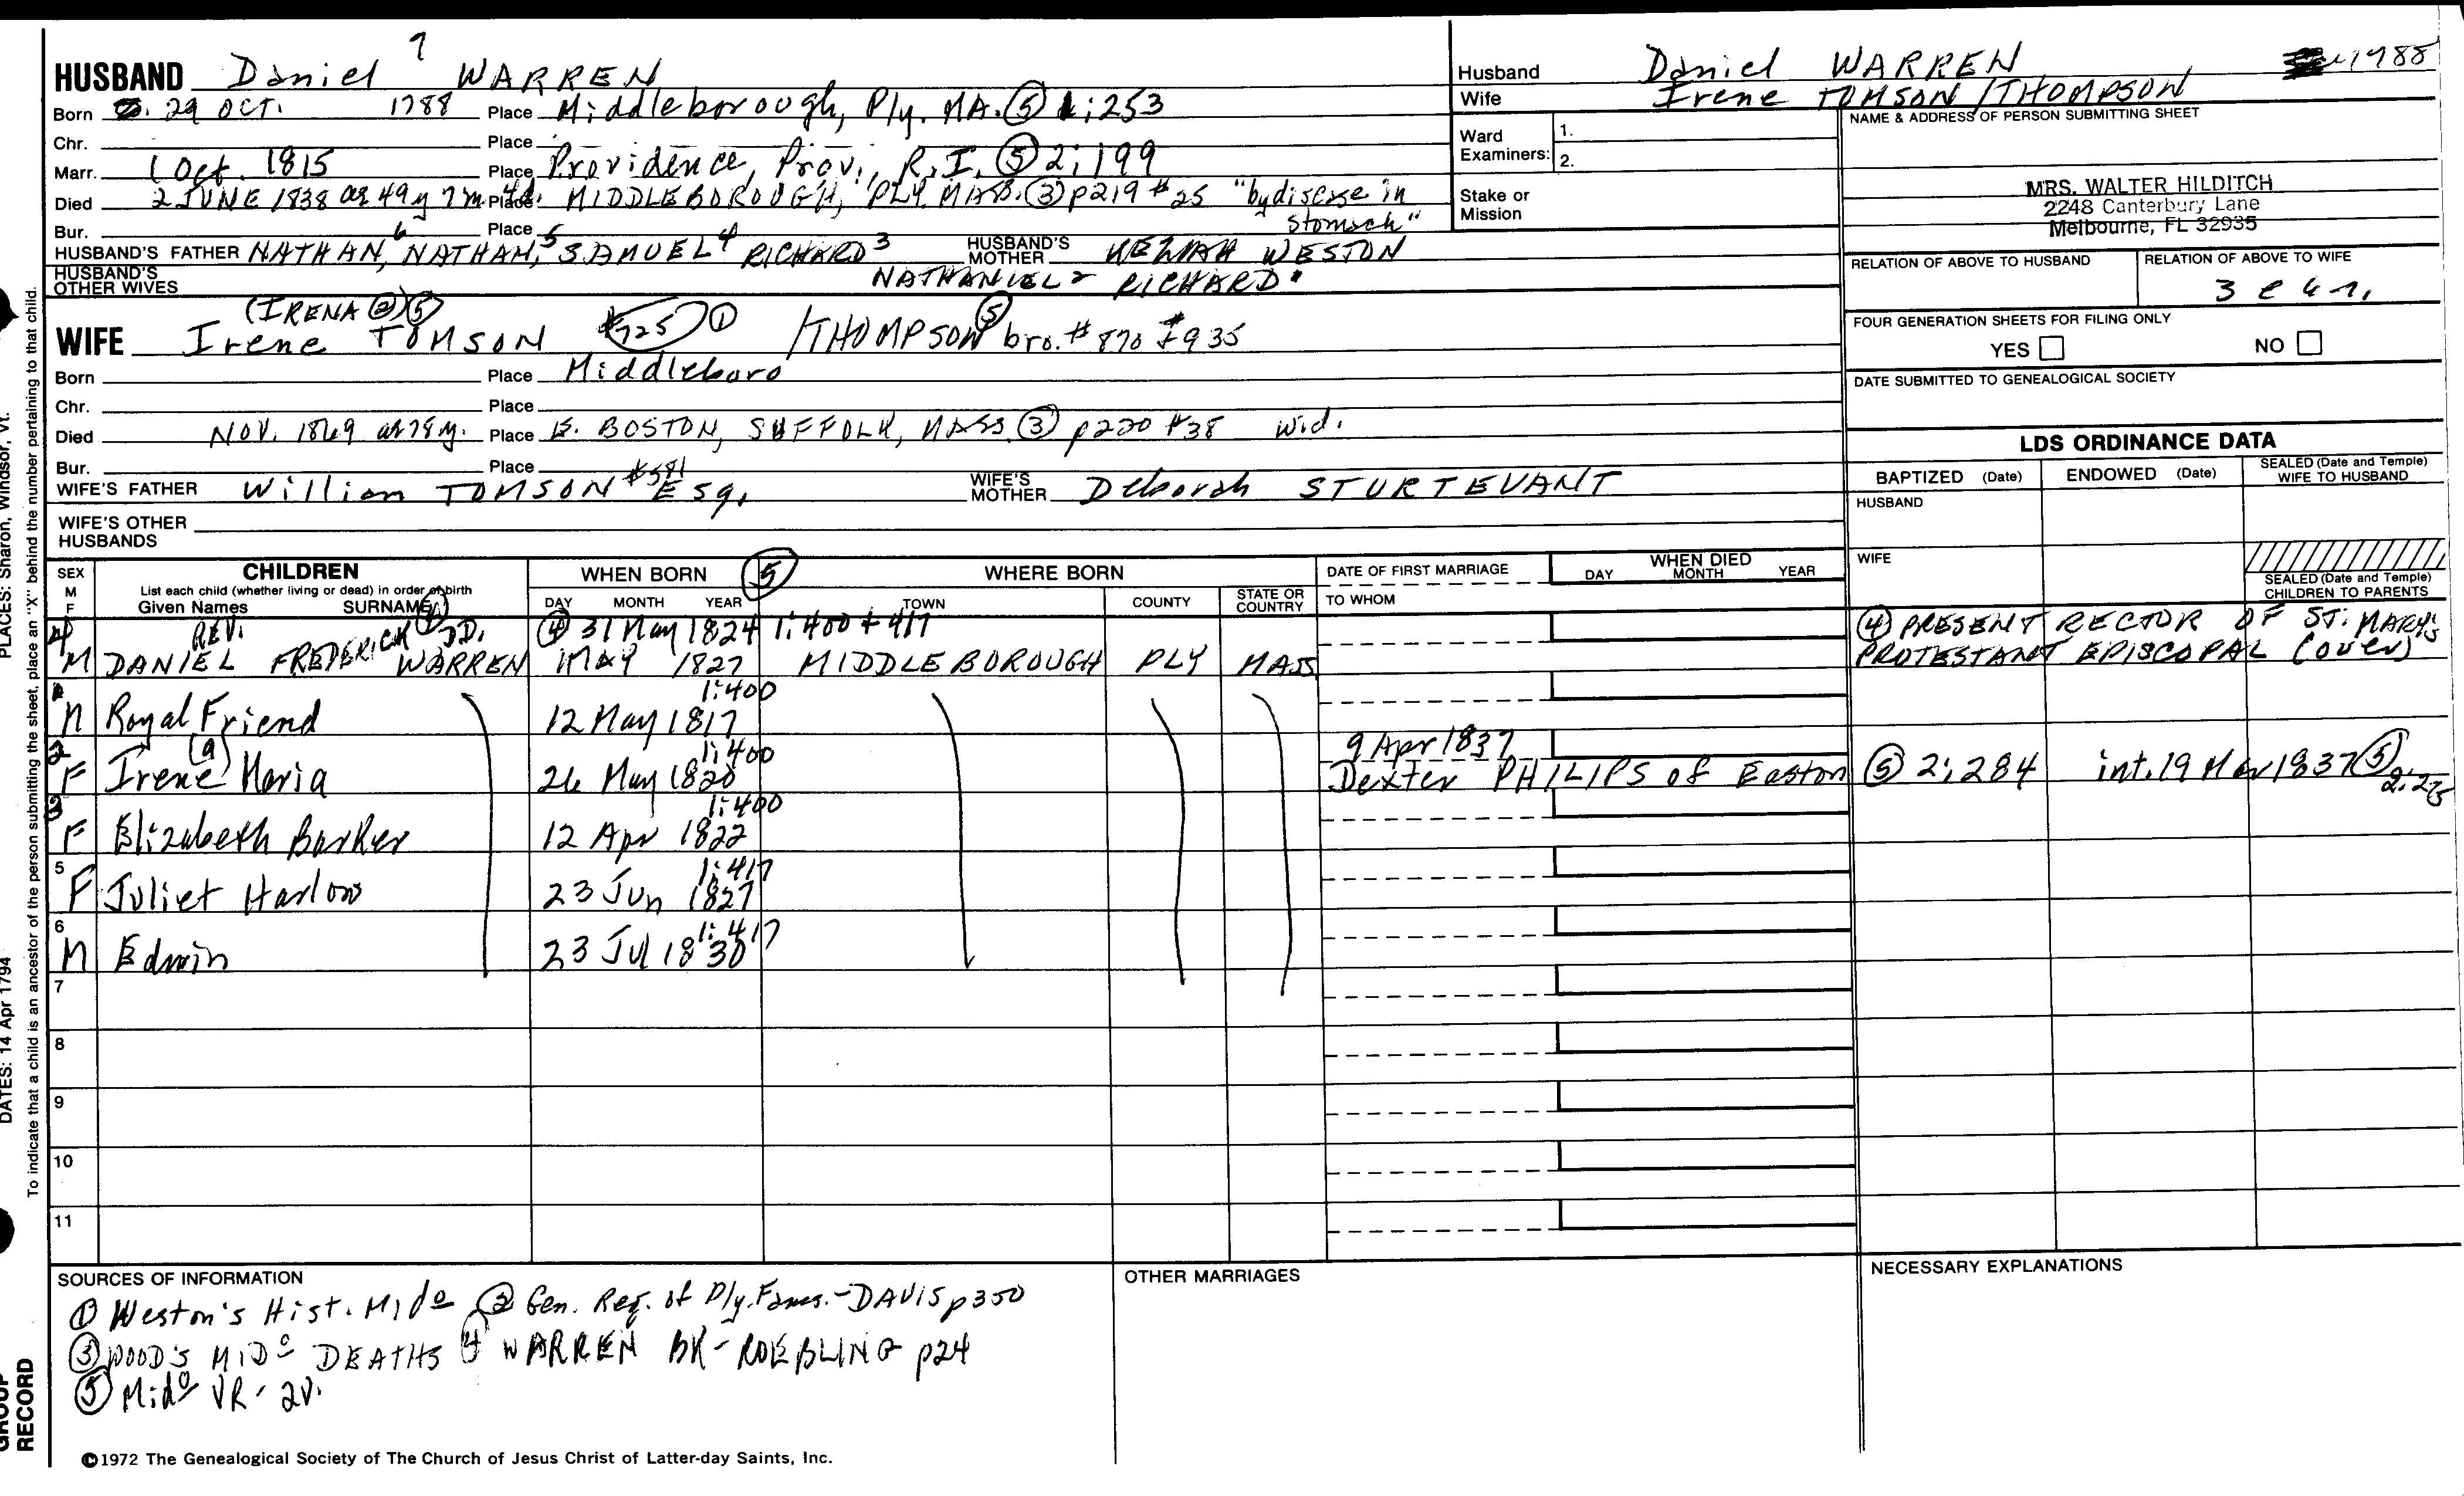 7
HUSBAND Daniel WARREN
Born 29 OCT. 1788 Place Middleborough, Ply. MA. ⑤ 1:253
Chr. Place
Marr. 1 Oct. 1815 Place Providence, Prov., R.I. ⑤ 2:199
Died 2 JUNE 1838 ae 49 y 7 m. 4d. Place MIDDLEBOROUGH, PLY. MASS. ③ p219 #25 "by disease in
Bur. Place stomach"
HUSBAND'S FATHER NATHAN,6 NATHAN,5 SAMUEL4 RICHARD3 HUSBAND'S MOTHER KEZIAH WESTON
HUSBAND'S OTHER WIVES NATHANIEL2 RICHARD1
(IRENA ② ⑤
WIFE Irene TOMSON #725 ① /THOMPSON ⑤ bro. # 870 + #935
Born Place Middleboro
Chr. Place
Died NOV. 1869 ae 78 y. Place E. BOSTON, SUFFOLK, MASS. ③ p220 #38 wid.
Bur. Place
WIFE'S FATHER William TOMSON #381 Esq. WIFE'S MOTHER Deborah STURTEVANT
WIFE'S OTHER HUSBANDS
Husband Daniel WARREN 1988
Wife Irene TOMSON/THOMPSON
Ward Examiners: 1.
2.
Stake or Mission
NAME & ADDRESS OF PERSON SUBMITTING SHEET
MRS. WALTER HILDITCH
2248 Canterbury Lane
Melbourne, FL 32935
RELATION OF ABOVE TO HUSBAND
RELATION OF ABOVE TO WIFE
3 c 4 r.
FOUR GENERATION SHEETS FOR FILING ONLY
YES NO
DATE SUBMITTED TO GENEALOGICAL SOCIETY
LDS ORDINANCE DATA
BAPTIZED (Date) ENDOWED (Date) SEALED (Date and Temple) WIFE TO HUSBAND
HUSBAND
WIFE
SEALED (Date and Temple) CHILDREN TO PARENTS
SEX M F
CHILDREN
List each child (whether living or dead) in order of birth
Given Names SURNAME
WHEN BORN ⑤ WHERE BORN
DAY MONTH YEAR TOWN COUNTY STATE OR COUNTRY
DATE OF FIRST MARRIAGE
TO WHOM
WHEN DIED
DAY MONTH YEAR
4 REV. JD. ④ 31 May 1824 1:400 + 417 ④ PRESENT RECTOR OF ST. MARY'S
M DANIEL FREDERICK WARREN MAY 1827 MIDDLEBOROUGH PLY MASS PROTESTANT EPISCOPAL (over)
1 1:400
M Royal Friend 12 May 1817
2 (a) 1:400 9 Apr 1837
F Irene Maria 26 May 1820 Dexter PHILIPS of Easton ⑤ 2:284 int. 19 Mar 1837 ⑤
3 1:400
F Elizabeth Barker 12 Apr 1822
5 1:417
F Juliet Harlow 23 Jun 1827
6 1:417
M Edwin 23 Jul 1830
7
8
9
10
11
SOURCES OF INFORMATION
① Weston's Hist. Mido ② Gen. Reg. of Ply. Fams. - DAVIS p350
③ WOOD'S MIDo DEATHS ④ WARREN BK - ROEBLING p24
⑤ Mido VR - 2V.
OTHER MARRIAGES
NECESSARY EXPLANATIONS
©1972 The Genealogical Society of The Church of Jesus Christ of Latter-day Saints, Inc.
PLACES: Sharon, Windsor, Vt.
DATES: 14 Apr 1794
To indicate that a child is an ancestor of the person submitting the sheet, place an "X" behind the number pertaining to that child.
GROUP
RECORD